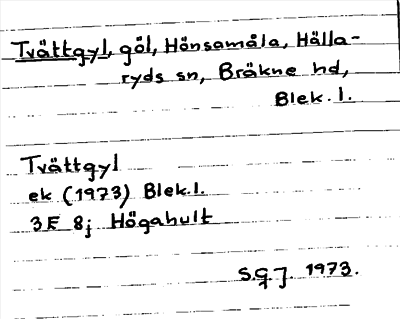 Tvättgyl, göl, Hönsamåla, Hälla-
ryds sn, Bräkne hd,
Blek. l.
Tvättgyl
ek (1973) Blek.l.
3F 8j Högahult
S.G J. 1973.